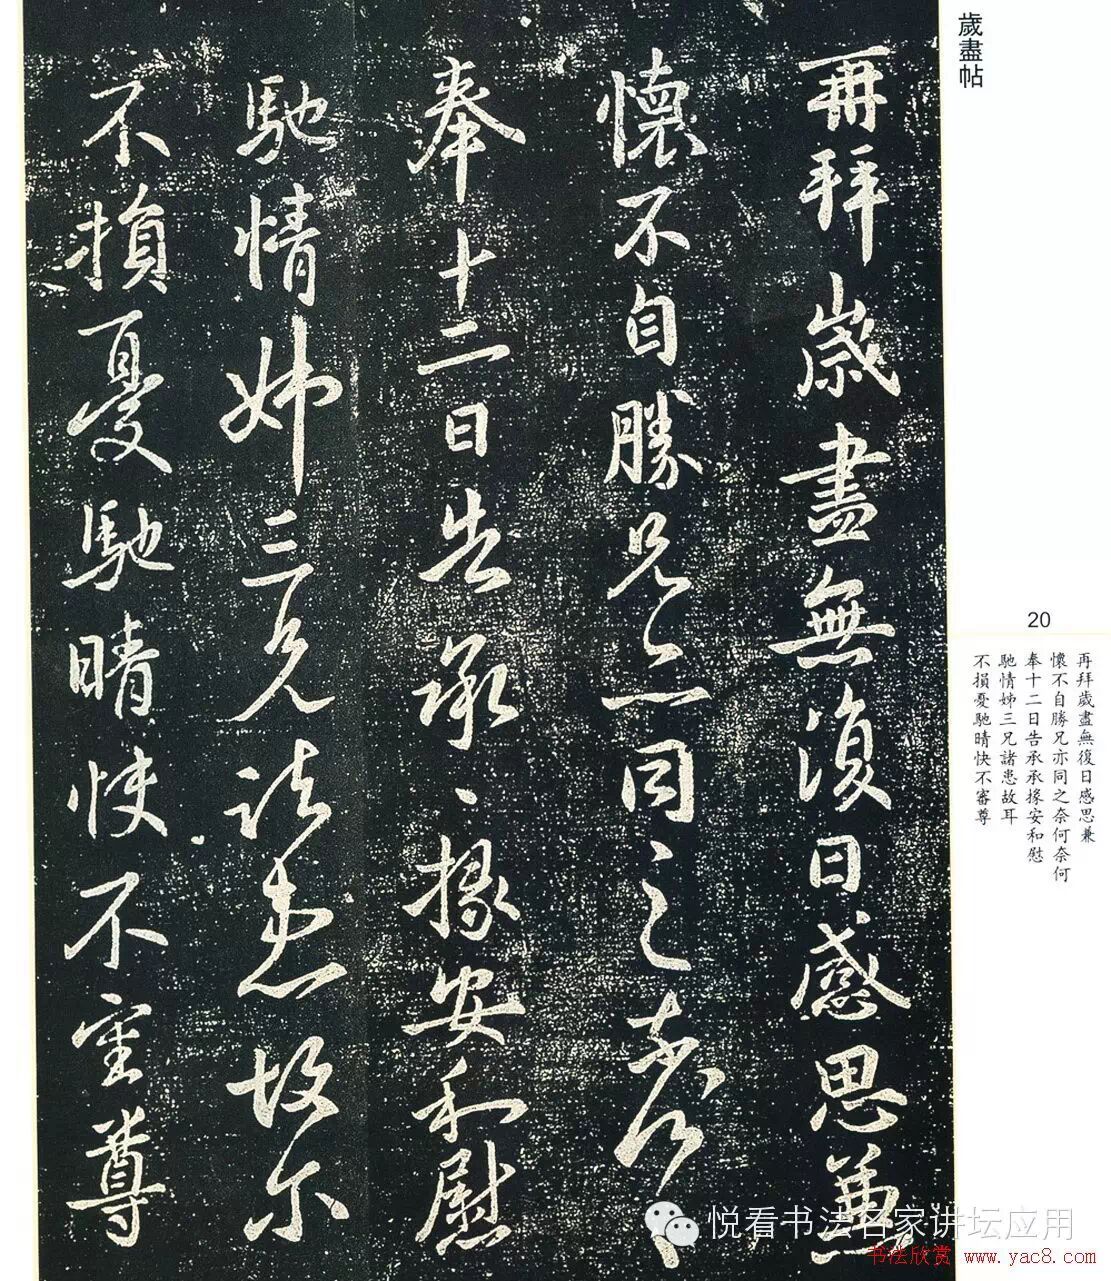 歲盡帖
再拜歲盡無復日感思兼
懷不自勝兄亦同之奈何〻〻
奉十二日告承〻掾安和慰
馳情姊三兄諸患故尔
不損憂馳晴快不審尊
20
再拜歲盡無復日感思兼
懷不自勝兄亦同之奈何奈何
奉十二日告承承掾安和慰
馳情姊三兄諸患故耳
不損憂馳晴快不審尊
悦看书法名家讲坛应用
书法欣赏 www.yac8.com